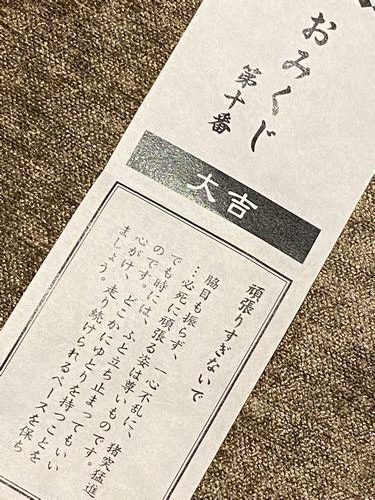 おみくじ
第十番
大吉
頑張りすぎないで
脇目も振らず、一心不乱に、猪突猛進
…必死に頑張る姿は尊いものです。
でも時には、ふと立ち止まってもいい
のです。どこかにゆとりを持つことを
心がけ、走り続けられるペースを保ち
ましょう。